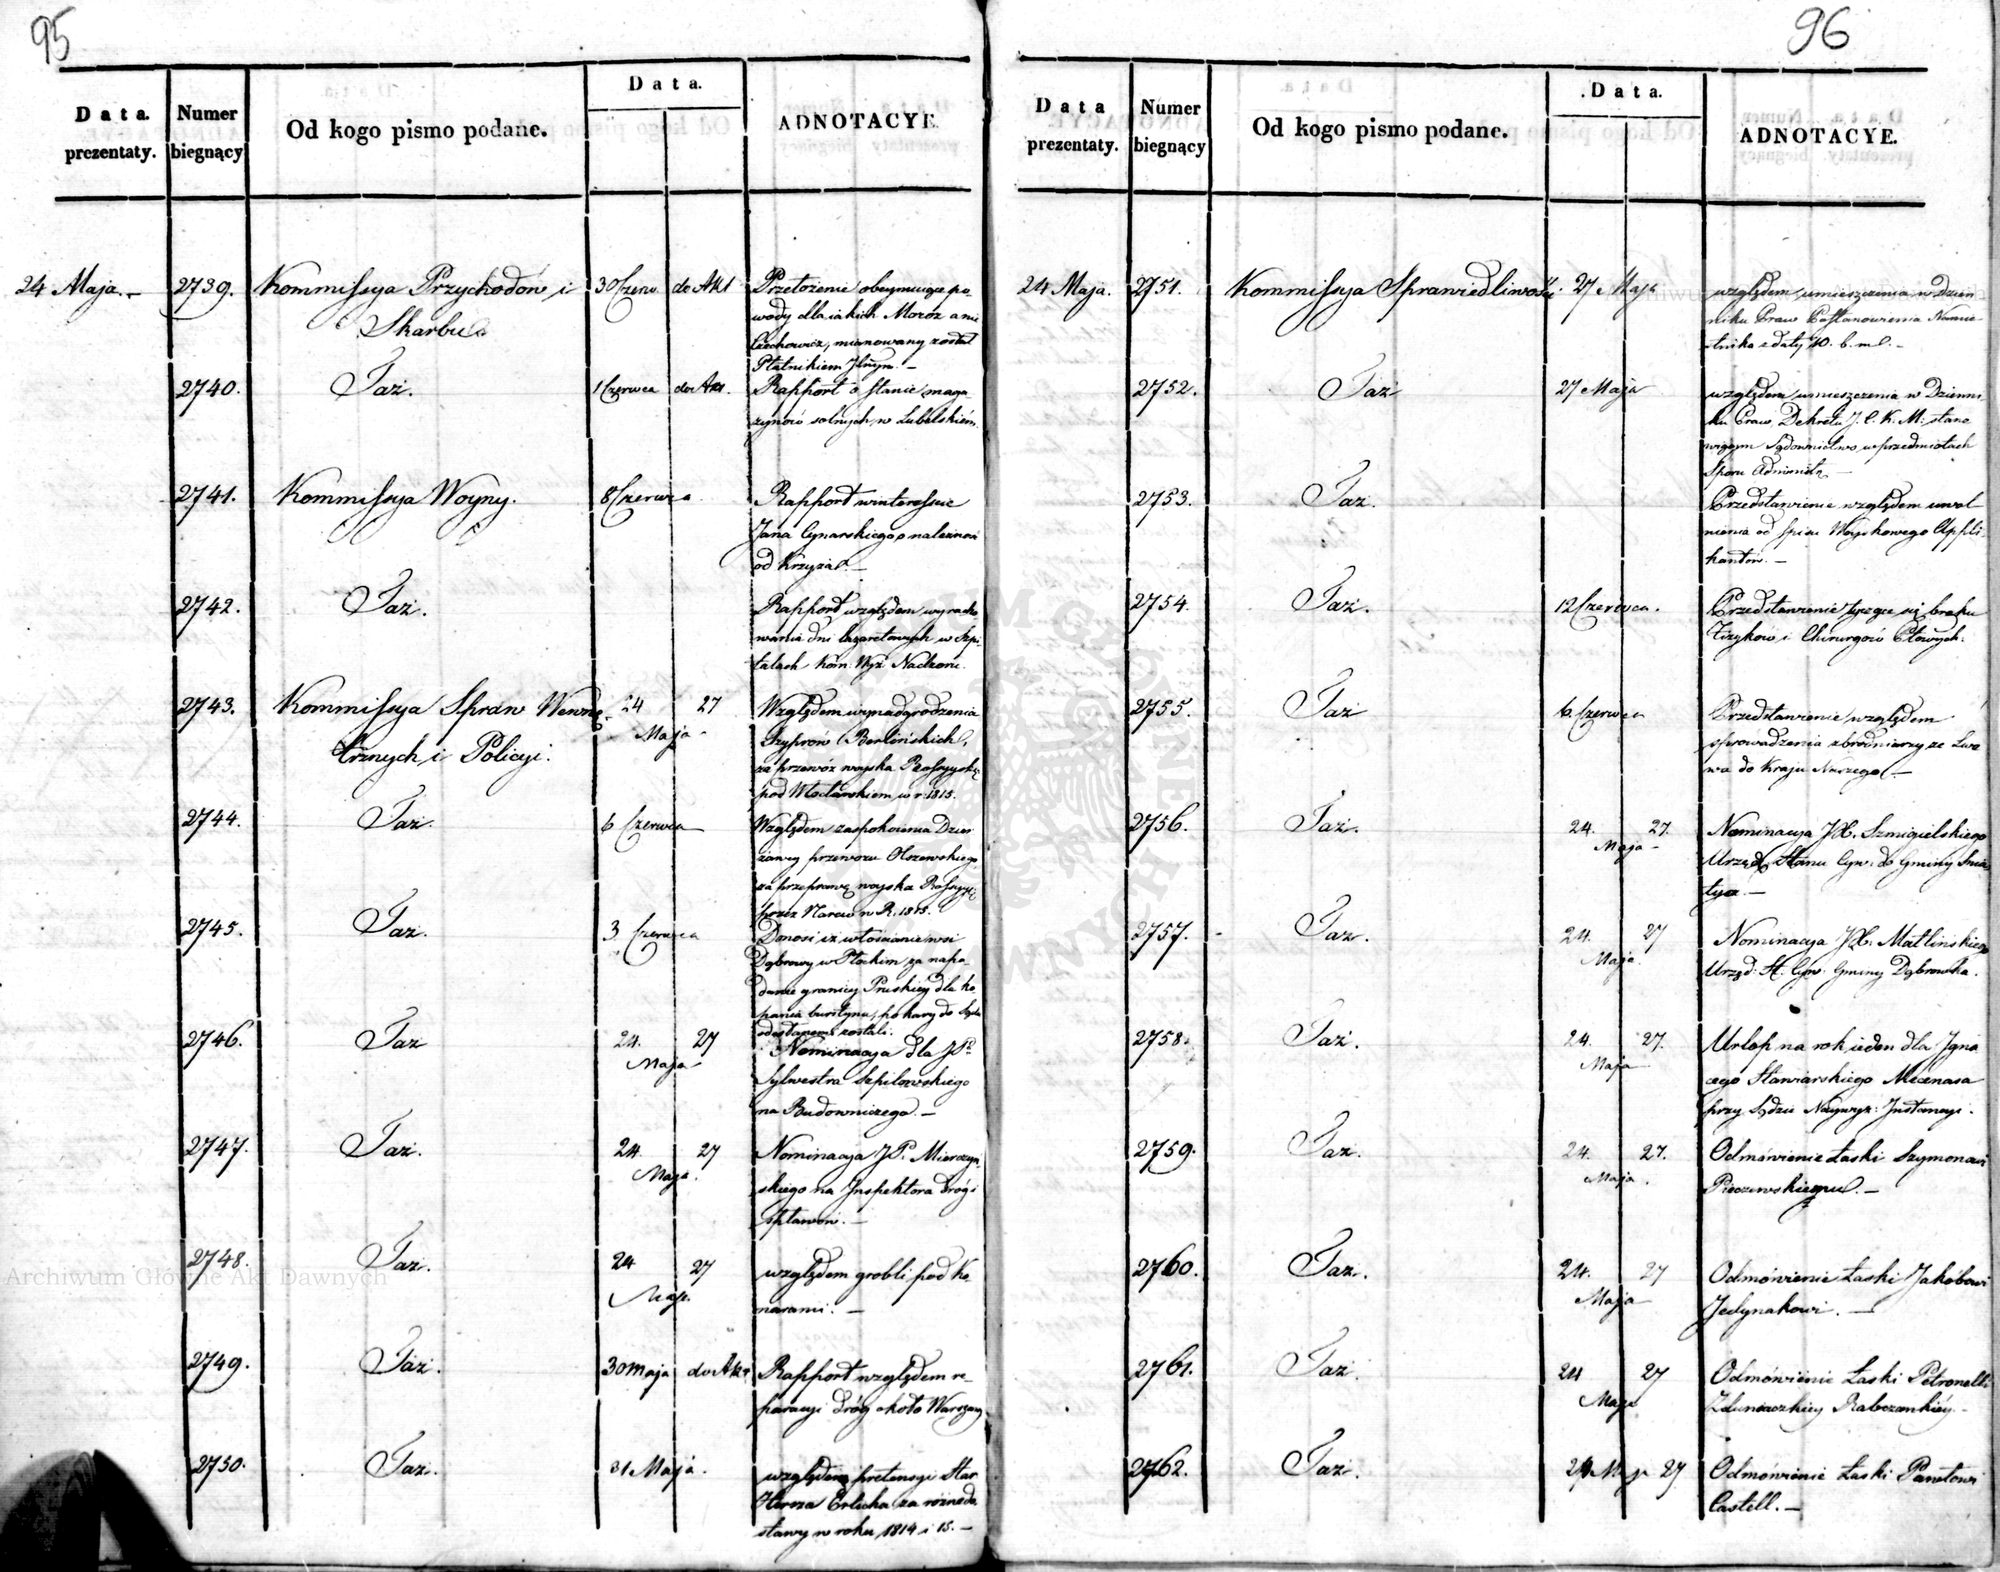 95
Data.
prezentaty.
Numer
biegnący
Od kogo pismo podane.
Data.
ADNOTACYE
24 Maja. —
2739.
Kommissya Przychodów i
Skarbu
30 Czerw
do Akt
Przełożenie obeymuiące po-
wody dla iakich Moroz a nie
Czechowicz, mianowany został
Płatnikiem Jlnym. —
2740.
Taż.
1 Czerwca
do Akt.
Rapport o stanie maga
zynów solnych, w Lubelskiem.
2741.
Kommissya Woyny.
8 Czerwca
Rapport w interessie
Jana Cynarskiego o należność
od Krzyżal. —
2742.
Taż.
Rapport względem wyracho
wania dni lazaretowych w Szpi-
talach Kom: Wyż. Nadzoru.
2743.
Kommissya Spraw Wewnę-
trznych i Policyi.
24 27
Maja
Względem wynadgrodzenia
Szyprów Berlińskich,
za przewóz woyska Rossyysk:
pod Włocławskiem w r. 1815.
2744.
Taż.
6 Czerwca
Względem zaspokoienia Dzier
żawcy przewozu Olszewskiego
za przeprawę woyska Rossyy:
przez Narew w R. 1815.
2745.
Taż.
3 Czerwca
Donosi iż włościanie wsi
Dąbrowy w Płockim za napa-
danie granicy Pruskiey dla ko
pania bursztynu, po kary do Sądu
odesłanemi zostali.
2746.
Taż
24. 27
Maja
Nominacya dla JPa
Sylwestra Szpilowskiego
na Budowniczego. —
2747.
Taż.
24. 27
Maja.
Nominacya JP. Mierczyń
skiego na Inspektora dróg i
spławów. —
2748.
Taż.
24 27
Maja.
względem grobli pod Ko
narami. —
2749.
Taż.
30 Maja
do Akt
Rapport względem re-
paracyi dróg około Warszawy
2750.
Taż.
31 Maja.
względem pretensyi Star
Hersza Erlicha za różne do
stawy w roku 1814 i 15. —
Archiwum Główne Akt Dawnych
96
Data
prezentaty.
Numer
biegnący
Od kogo pismo podane.
Data.
ADNOTACYE.
24 Maja.
2751.
Kommissya Sprawiedliwości
27 Maja
względem umieszczenia w Dzien
niku Praw Postanowienia Namie
stnika z daty 10. b. m. —
2752.
Taż
27 Maja
względem umieszczenia w Dzienni
ku Praw, Dekretu J. C. K. M: stano
wiącym Sądownictwo w przedmiotach
Sporu Admin: —
2753.
Taż.
Przedstawienie względem uwol
nienia od spisu Woyskowego Appli-
kantów. —
2754.
Taż.
12 Czerwca.
Przedstawienie tyczące się braku
Fizyków i Chirurgów Płowych.
2755.
Taż
6 Czerwca
Przedstawienie względem
sprowadzenia zbrodniarzy ze Lwo
wa do Kraju Naszego. —
2756.
Taż.
24. 27.
Maja
Nominacya JX. Szmigielskiego
Urzęd: Stanu Cyw: do Gminy Śnia
tycz. —
2757.
Taż.
24. 27
Maja
Nominacya JX. Matlińskiego
Urzęd: St. Cyw: Gminy Dąbrowka.
2758.
Taż.
24. 27.
Maja
Urlop na rok ieden dla Igna
cego Stawiarskiego Mecenasa
przy Sądzie Naywyż: Instancyi.
2759.
Taż.
24. 27.
Maja.
Odmówienie Łaski Szymonowi
Pieczewskiemu. —
2760.
Taż.
24. 27
Maja
Odmówienie Łaski Jakóbowi
Jedynakowi. —
2761.
Taż.
24 27
Maja
Odmówienie Łaski Petronelli
2762.
Taż.
24 Maja 27.
Odmówienie Łaski Pawłowi
Castell. —